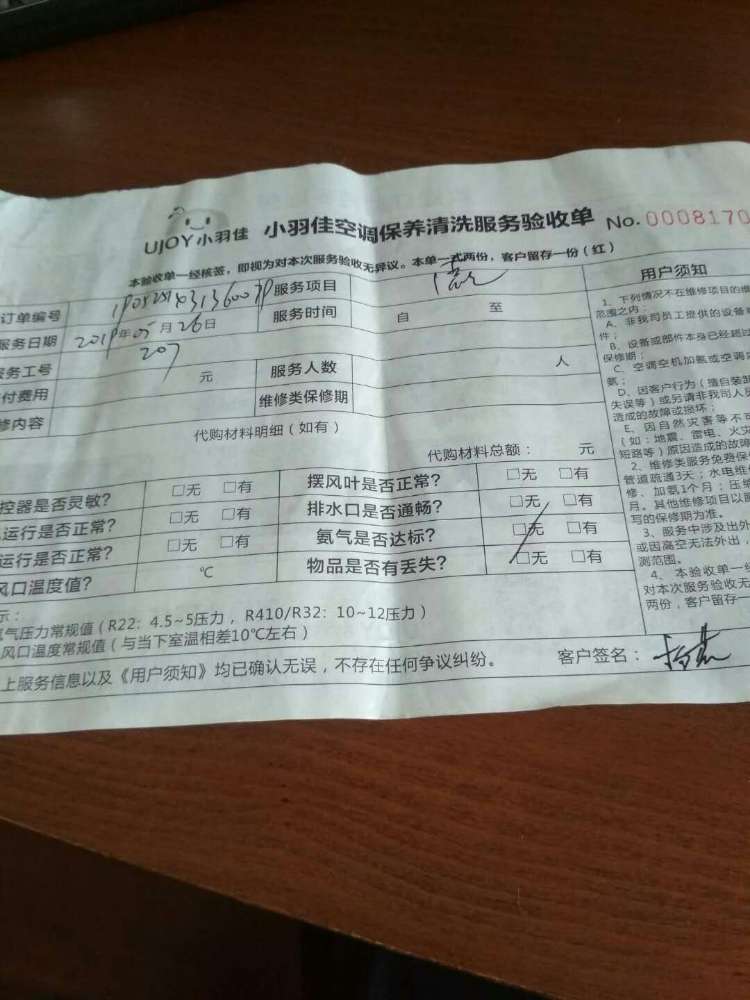 UJOY小羽佳 小羽佳空调保养清洗服务验收单 No.0008170
本验收单一经核签，即视为对本次服务验收无异议。本单一式两份，客户留存一份（红）
订单编号 服务项目
服务日期 2019年05月26日 服务时间 自 至
务工号 207 服务人数 人
付费用 元 维修类保修期
修内容
代购材料明细（如有） 代购材料总额： 元
控器是否灵敏？ □无 □有 摆风叶是否正常？ □无 □有
运行是否正常？ □无 □有 排水口是否通畅？ □无 □有
运行是否正常？ □无 □有 氨气是否达标？ □无 □有
风口温度值？ ℃ 物品是否有丢失？ □无 □有
示：
氨气压力常规值（R22：4.5~5压力，R410/R32：10~12压力）
风口温度常规值（与当下室温相差10℃左右）
上服务信息以及《用户须知》均已确认无误，不存在任何争议纠纷。 客户签名：
用户须知
1、下列情况不在维修项目的维
范围之内：
A、非我司员工提供的设备
件；
B、设备或部件本身已经超过
保修期；
C、空调空机加氨或空调
氨；
D、因客户行为（擅自装卸
失误等）或另请非我司人员
造成的故障或损坏；
E、因自然灾害等不可
（如：地震、雷电、火灾
短路等）原因造成的故障
2、维修类服务免费保
管道疏通3天；水电维
修、加氨1个月；压单
月。其他维修项目以服
写的保修期为准。
3、服务中涉及出外
或因高空无法外出，
测范围。
4、本验收单一经
对本次服务验收无
两份，客户留存一